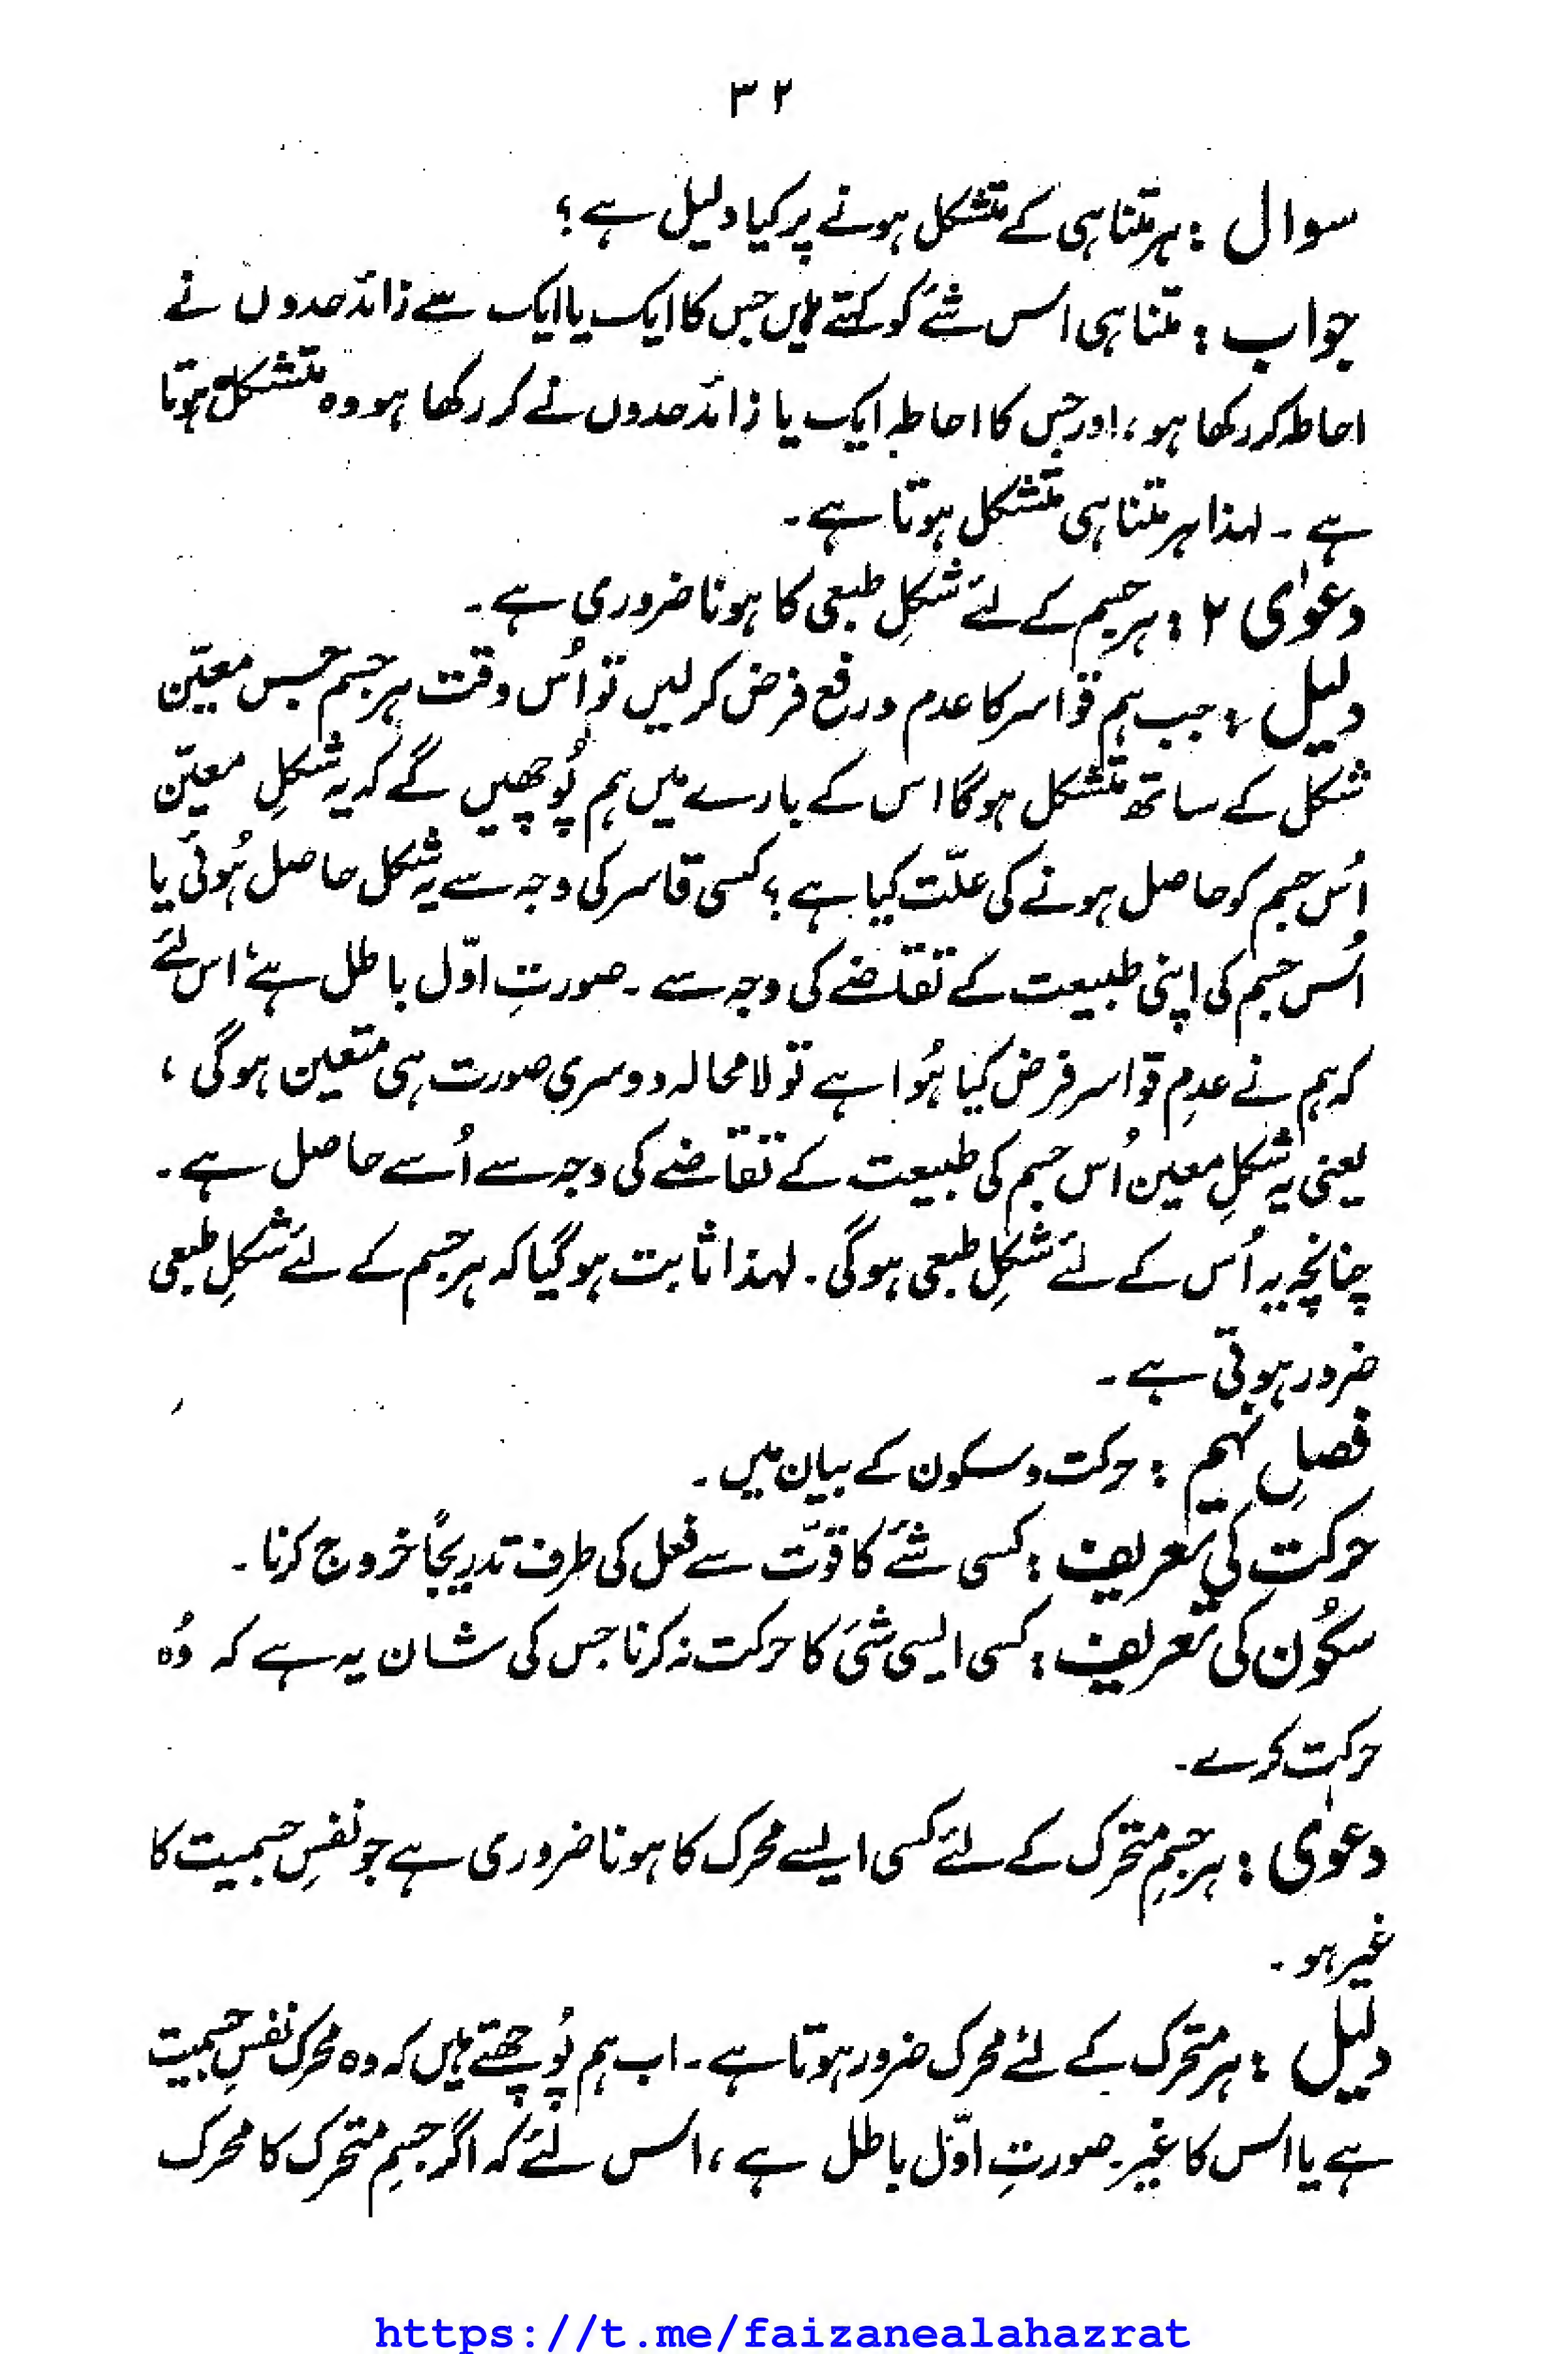 ۳۲
سوال : ہر متناہی کے متشکل ہونے پر کیا دلیل ہے؟
جواب : متناہی اس شئے کو کہتے ہیں جس کا ایک یا ایک سے زائد حدوں نے
احاطہ کر رکھا ہو، اور جس کا احاطہ ایک یا زائد حدوں نے کر رکھا ہو وہ متشکل ہوتا
ہے ۔ لہذا ہر متناہی متشکل ہوتا ہے ۔
دعوٰی ۲ : ہر جسم کے لئے شکلِ طبعی کا ہونا ضروری ہے ۔
دلیل : جب ہم قواسر کا عدم و رفع فرض کر لیں تو اُس وقت ہر جسم جس معیّن
شکل کے ساتھ متشکل ہوگا اس کے بارے میں ہم پُوچھیں گے کہ یہ شکلِ معیّن
اُس جسم کو حاصل ہونے کی علّت کیا ہے ؛ کسی قاسر کی وجہ سے یہ شکل حاصل ہُوئی یا
اُس جسم کی اپنی طبیعت کے تقاضے کی وجہ سے ۔ صورتِ اوّل باطل ہے، اس لئے
کہ ہم نے عدمِ قواسر فرض کیا ہُوا ہے تو لامحالہ دوسری صورت ہی متعین ہوگی ،
یعنی یہ شکلِ معین اُس جسم کی طبیعت کے تقاضے کی وجہ سے اُسے حاصل ہے ۔
چنانچہ یہ اُس کے لئے شکلِ طبعی ہوگی ۔ لہذا ثابت ہوگیا کہ ہر جسم کے لئے شکلِ طبعی
ضرور ہوتی ہے ۔
فصلِ نہم : حرکت و سکون کے بیان میں ۔
حرکت کی تعریف : کسی شئے کا قوّت سے فعل کی طرف تدریجاً خروج کرنا ۔
سکُون کی تعریف : کسی ایسی شئ کا حرکت نہ کرنا جس کی شان یہ ہے کہ وُہ
حرکت کرے ۔
دعوٰی : ہر جسمِ متحرک کے لئے کسی ایسے محرک کا ہونا ضروری ہے جو نفسِ جسمیت کا
غیر ہو ۔
دلیل : ہر متحرک کے لئے محرک ضرور ہوتا ہے ۔ اب ہم پُوچھتے ہیں کہ وہ محرک نفسِ جسمیت
ہے یا اس کا غیر ۔ صورتِ اوّل باطل ہے ، اس لئے کہ اگر جسمِ متحرک کا محرک
https://t.me/faizanealahazrat